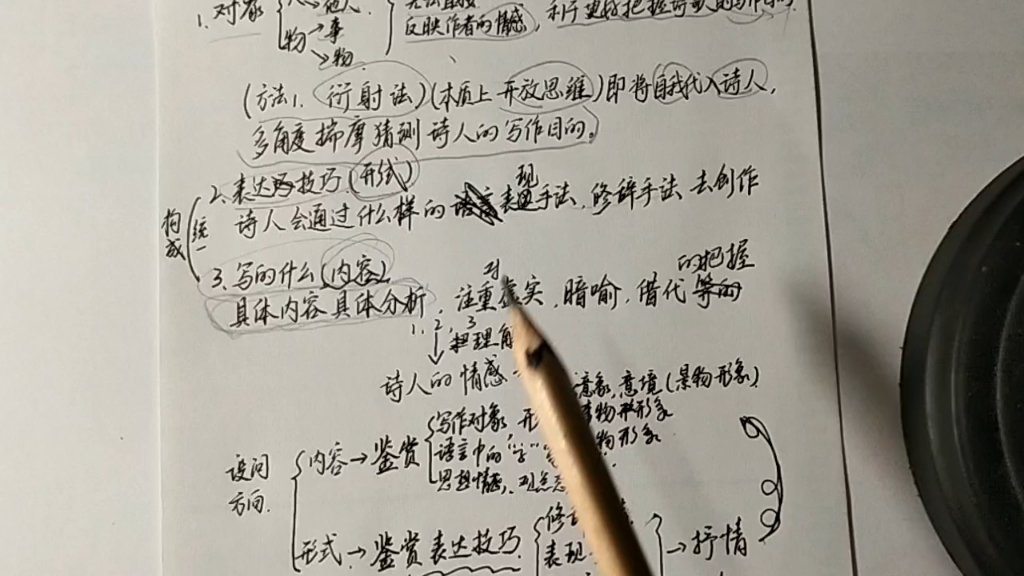 1. 对象
人→他人
物→事
→物
反映作者的情感,
(方法1. 衍射法)(本质上 开放思维)即将自我代入诗人,
多角度揣摩猜测诗人的写作目的。
2. 表达技巧(形式)
诗人会通过什么样的表现手法,修辞手法 去创作
构成
统一
3. 写的什么(内容)
具体内容具体分析,注重对 实,暗喻,借代的把握
1, 2, 3
把理
诗人的情感
意象,意境(景物形象)
设问方向.
内容→鉴赏
写作对象 形
语言中的"字"
思想情感,观点
物形象
形式→鉴赏表达技巧
修
表现
→抒情